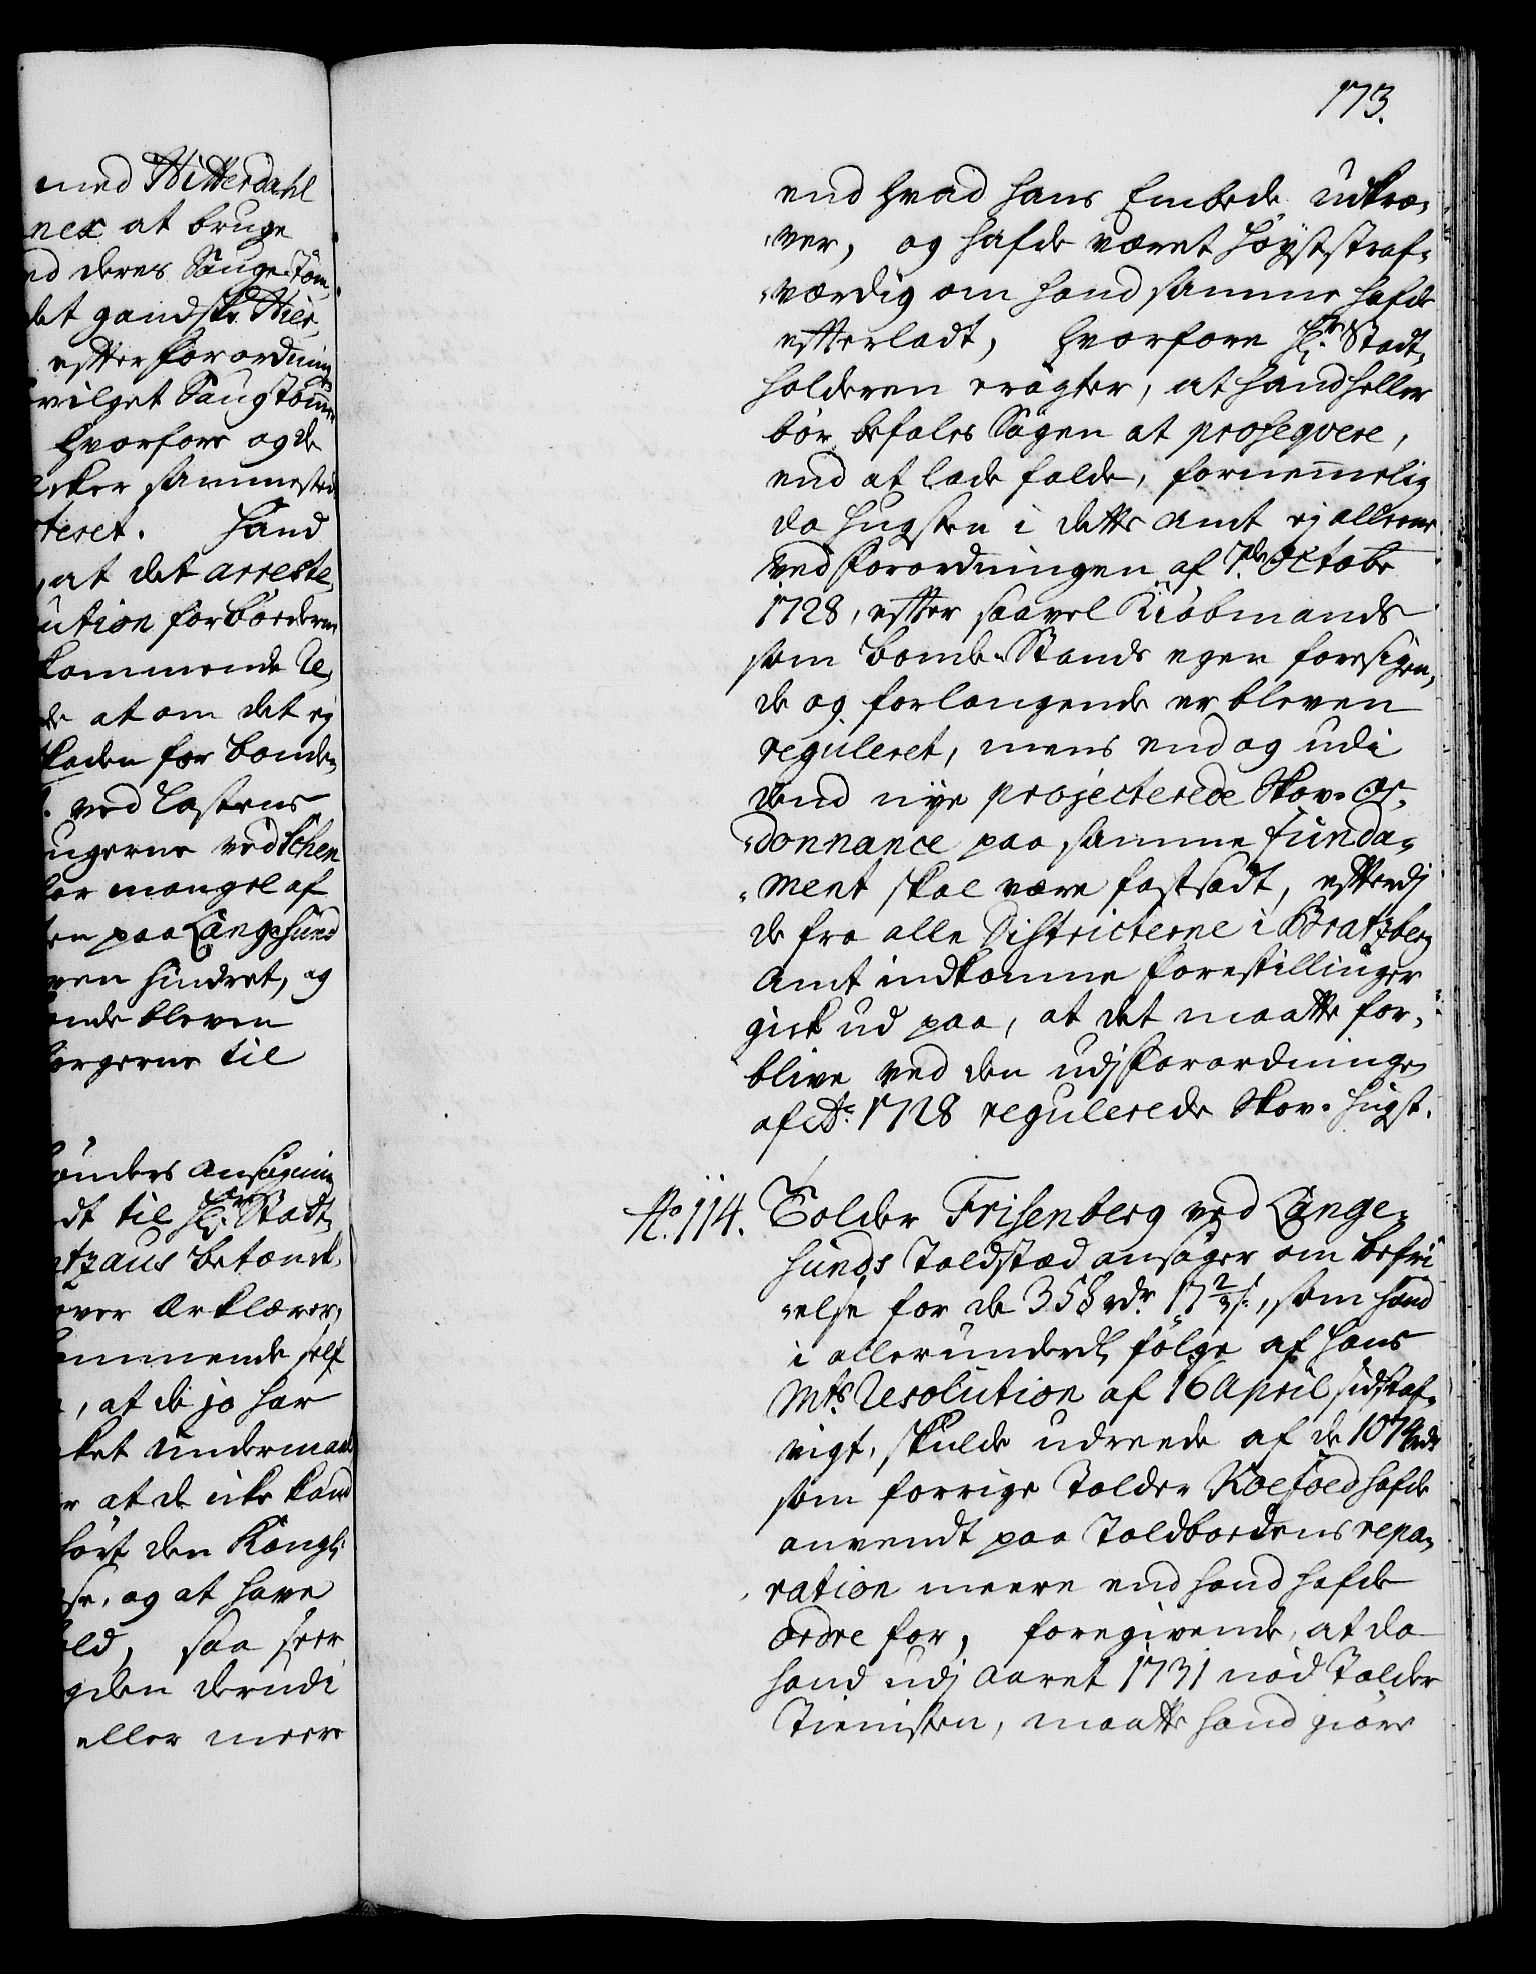 med Hitterdahl
nex at bruge
nd deres Saugetöm¬
det gandske Hier¬
effter forordning
rvilget Saugtömer
hvorfore og de
sammested
teret. Hand
at det arreste¬
ution for Borderne
kommende Re¬
de at om det ej
kaden for Bonde¬
ved Lastens
ugerne ved Schen
for mangel af
en paa Langesund
ven hindret, og
ende bleven
borgerne til
bönders ansögning
dt til Hr. Stadt¬
ntzaus betænk¬
over Erklærer,
ommende self
, at de jo har
ket undermaal
r at de icke kand
hört den Kongl:
se, og at have
old, saa seer
gden derudi
eller meere
173.
end hvad hans Embede udkræ¬
ver, og hafde været höyststraf¬
værdig om hand samme hafde
efterladt, hvorfore Hr. Stadt¬
holderen eragter, at hand heller
bör befales Sagen at proseqvere,
end at lade falde, fornemmelig
da hugsten i dette Amt ej alleene
ved Forordningen af 7de Octobr
1728, effter saavel Kiöbmands
som Bonde-Stands egen foresigen¬
de og forlangende er bleven
reguleret, mens end og udi
dend nye projecterede Skov-Or¬
donnance paa samme Funda¬
ment skal være fastsadt, efterdj
de fra alle Districterne i Bratzberg
Amt indkomne forestillinger
gick ud paa, at det maatte for¬
blive ved den udj Forordninge
af Ao. 1728 regulerede Skov-hugst.
No. 114. Tolder Frisenberg ved Lange¬
sunds Toldsted ansöger om befri
else for de 358 rdr. 17 2/3 s:, som hand
i allerunderd. fölge af Hans
Mts. Resolution af 16 April sidstaf¬
vigt, skulde udreede af de 1074 rdr
som forrige Tolder Koefoed hafde
anvendt paa Toldbodens repa¬
ration meere end hand hafde
ordre for, foregivende, at da
hand udj Aaret 1731 nöd Tolder
Tienisten, maatte hand giöre